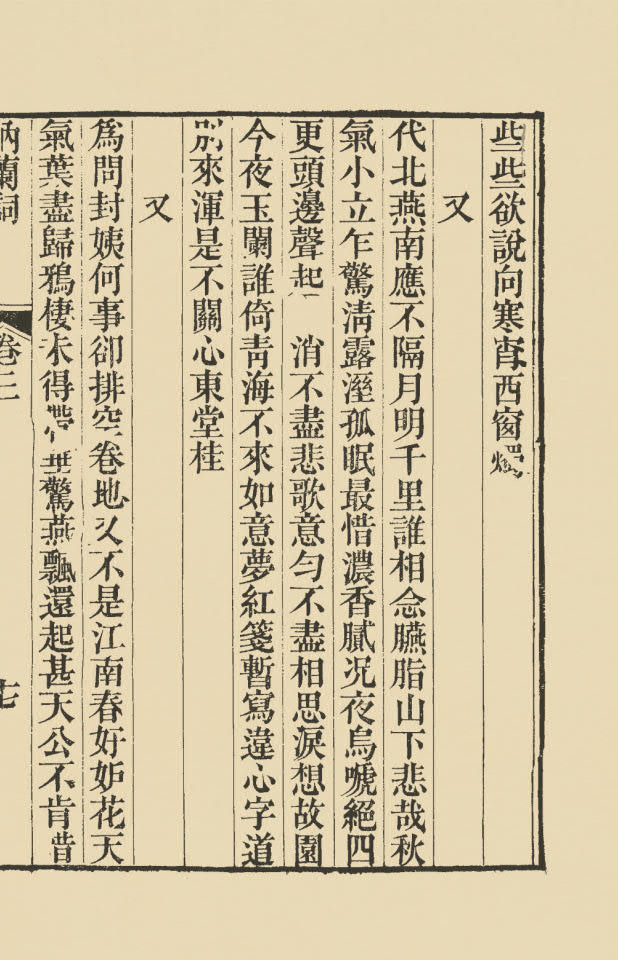 些些欲說向寒宵西窗燭
又
代北燕南應不隔月明千里誰相念臙脂山下悲哉秋
氣小立乍驚清露溼孤眠最惜濃香膩况夜烏嗁絕四
更頭邊聲起　消不盡悲歌意匀不盡相思淚想故園
今夜玉闌誰倚青海不來如意夢紅箋暫寫違心字道
別來渾是不關心東堂桂
又
爲問封姨何事卻排空卷地又不是江南春好妒花天
氣葉盡歸鴉棲未得帶垂驚燕飄還起甚天公不肯惜
納蘭詞　卷